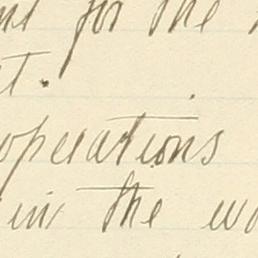 for the
t.
operations
in the